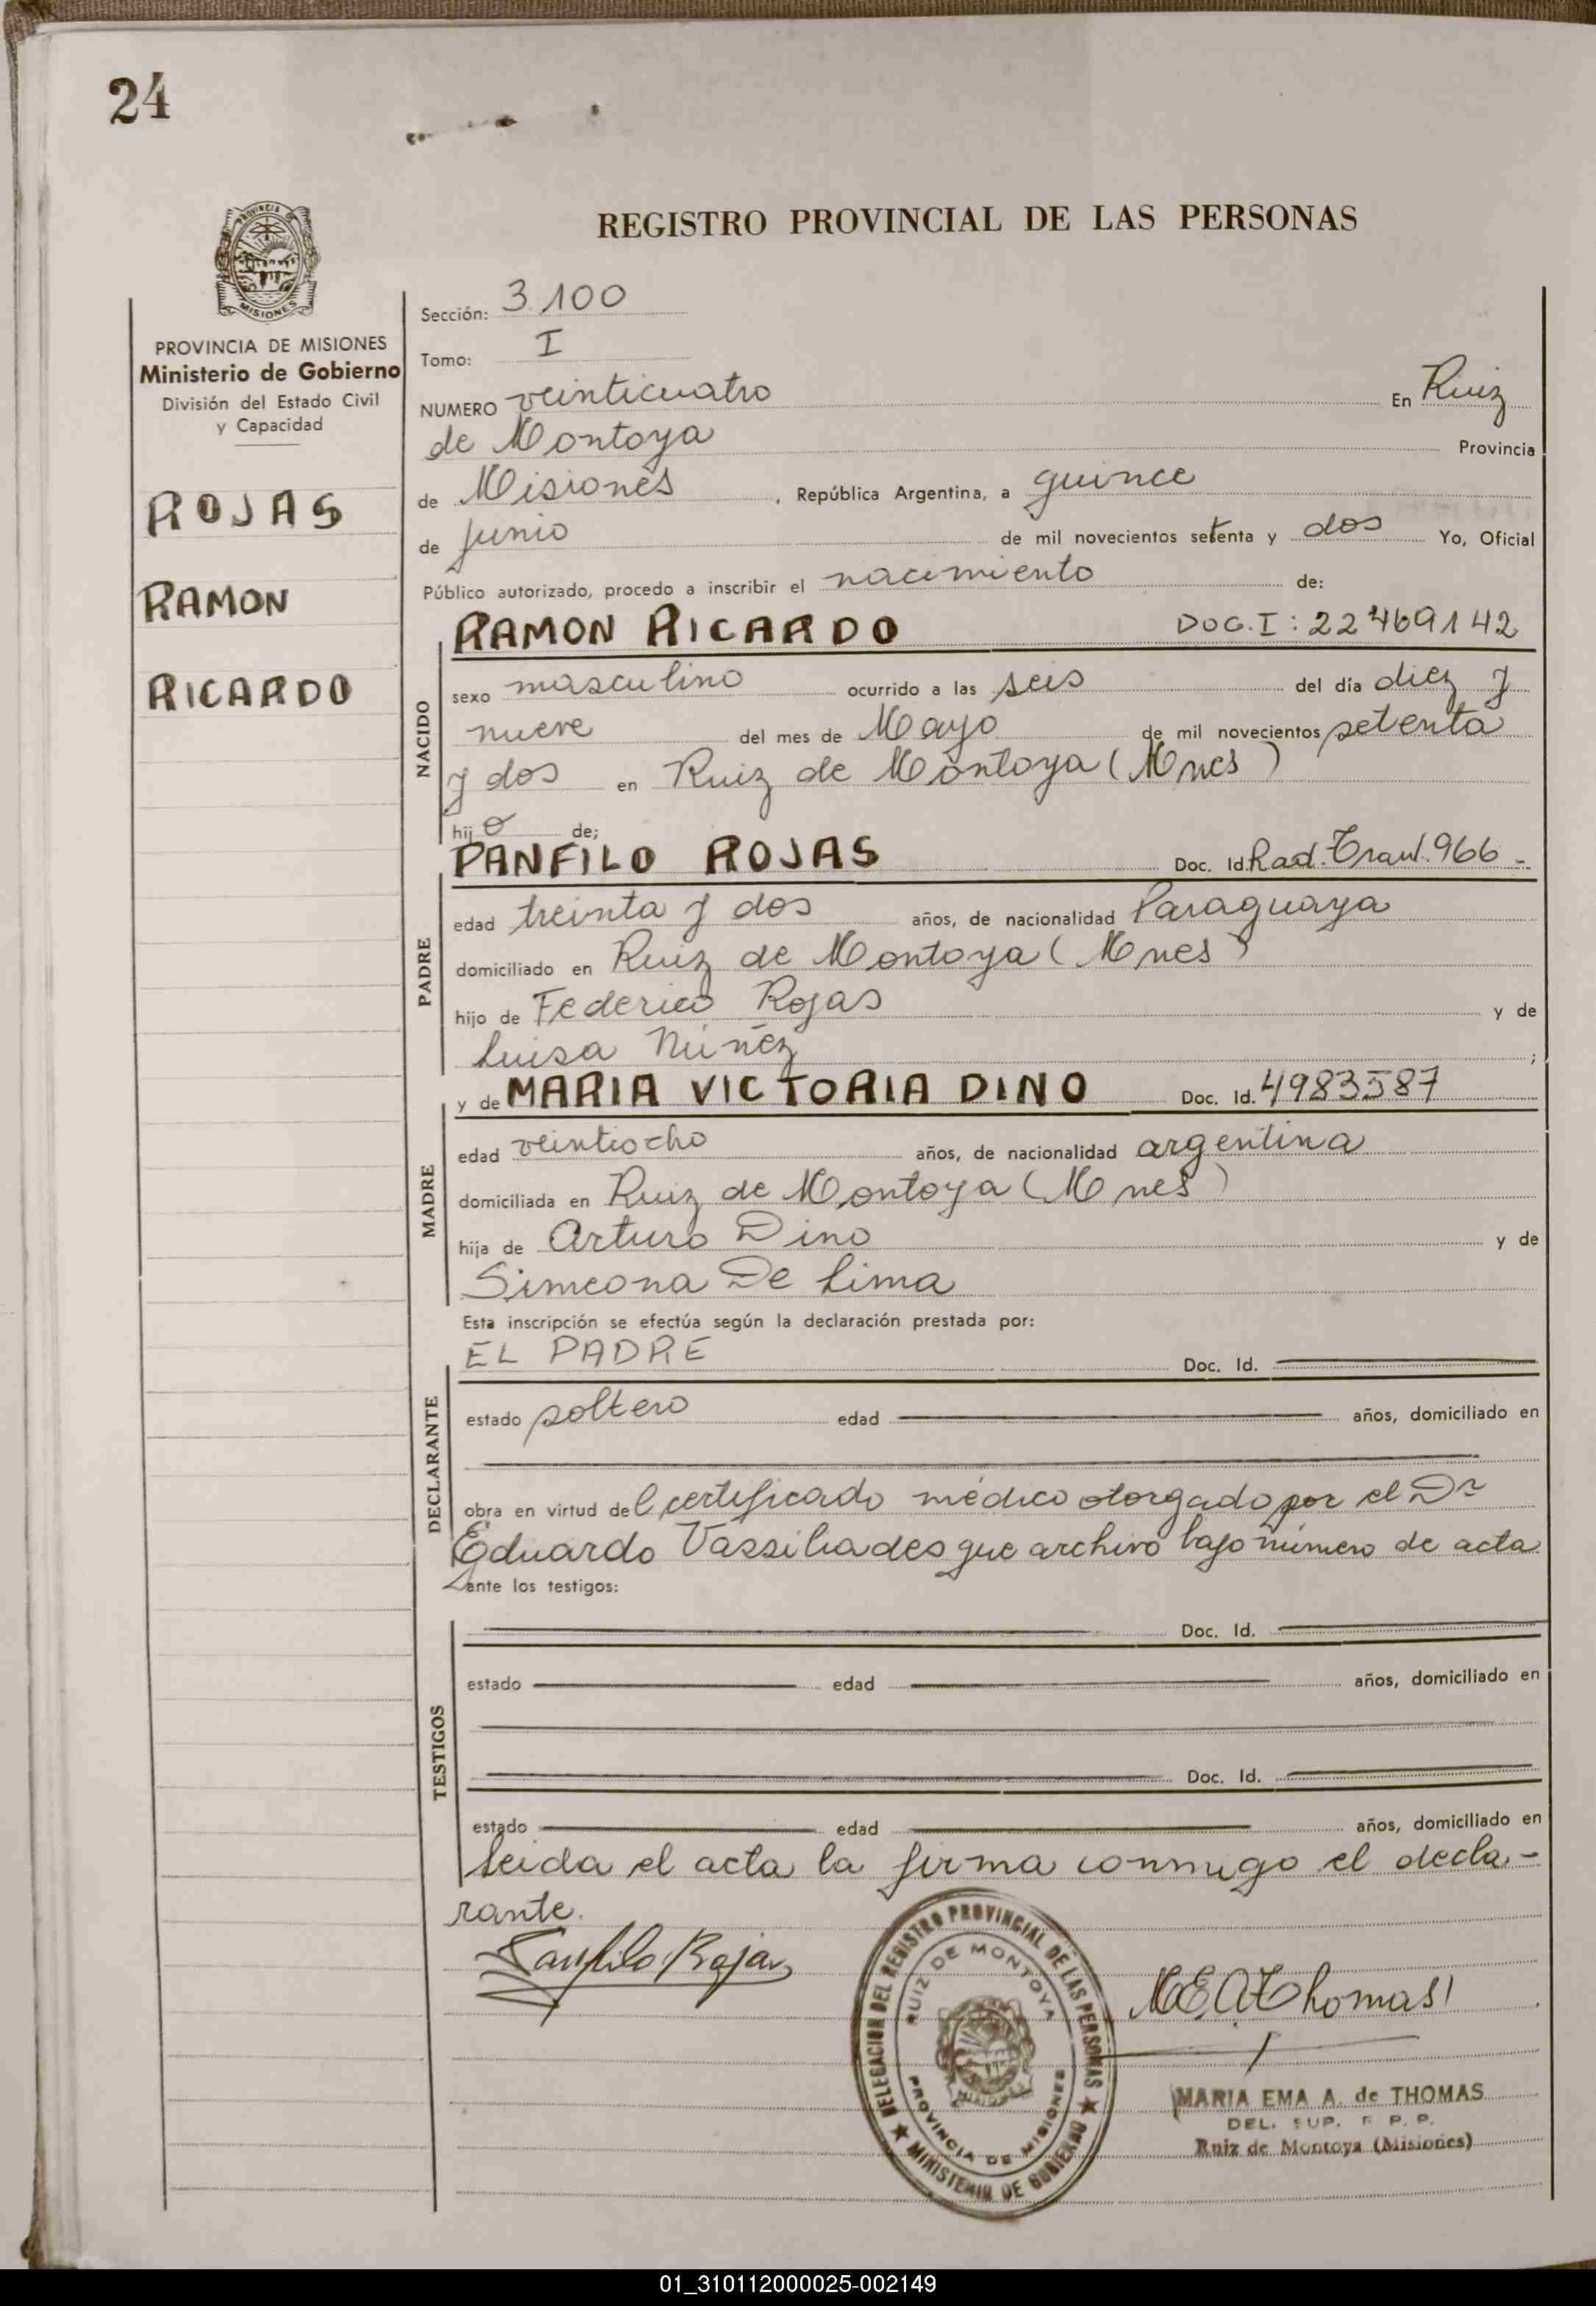 24
PROVINCIA DE
MISIONES
REGISTRO PROVINCIAL DE LAS PERSONAS
PROVINCIA DE MISIONES
Ministerio de Gobierno
División del Estado Civil
y Capacidad
ROJAS
RAMON
RICARDO
Sección: 3.100
Tomo: I
NUMERO veinticuatro En Ruiz
de Montoya Provincia
de Misiones, República Argentina, a quince
de junio de mil novecientos setenta y dos Yo, Oficial
Público autorizado, procedo a inscribir el nacimiento de:
NACIDO
RAMON RICARDO DOC.I: 22469142
sexo masculino ocurrido a las seis del día diez y
nueve del mes de Mayo de mil novecientos setenta
y dos en Ruiz de Montoya (Mnes)
hijo de;
PADRE
PANFILO ROJAS Doc. Id. Rad. 966 -
edad treinta y dos años, de nacionalidad Paraguaya
domiciliado en Ruiz de Montoya (Mnes)
hijo de Federico Rojas y de
Luisa Núñez ;
MADRE
y de MARIA VICTORIA DINO Doc. Id. 4983587
edad veintiocho años, de nacionalidad argentina
domiciliada en Ruiz de Montoya (Mnes)
hija de Arturo Dino y de
Simeona De Lima
Esta inscripción se efectúa según la declaración prestada por:
DECLARANTE
EL PADRE Doc. Id.
estado soltero edad años, domiciliado en
obra en virtud del certificado médico otorgado por el Dr
Eduardo Vassiliades que archivo bajo número de acta
ante los testigos:
TESTIGOS
Doc. Id.
estado edad años, domiciliado en
Doc. Id.
estado edad años, domiciliado en
Leida el acta la firma conmigo el decla-
rante.
Panfilo Rojas
M.E.A.T homas
DELEGACION DEL REGISTRO PROVINCIAL DE LAS PERSONAS
RUIZ DE MONTOYA
PROVINCIA DE MISIONES
MINISTERIO DE GOBIERNO
MARIA EMA A. de THOMAS
DEL. SUP. P. P.
Ruiz de Montoya (Misiones)
01_310112000025-002149